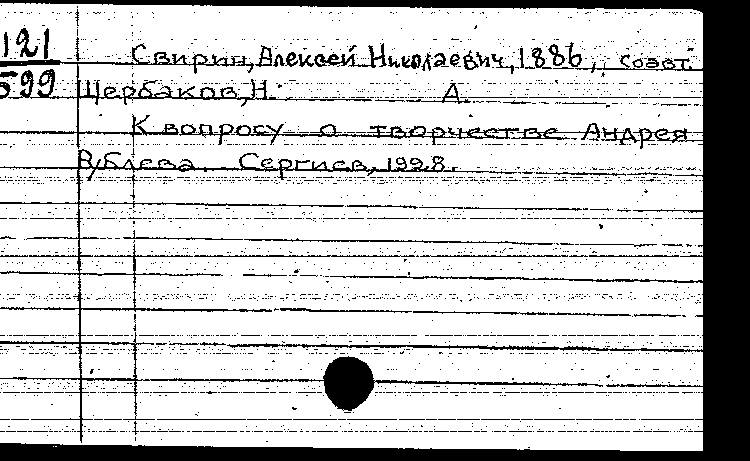 121
599
Свирин, Алексей Николаевич, 1886, соавт.
Щербаков, Н. А.
К вопросу о творчестве Андрея
Рублева. Сергиев, 1928.